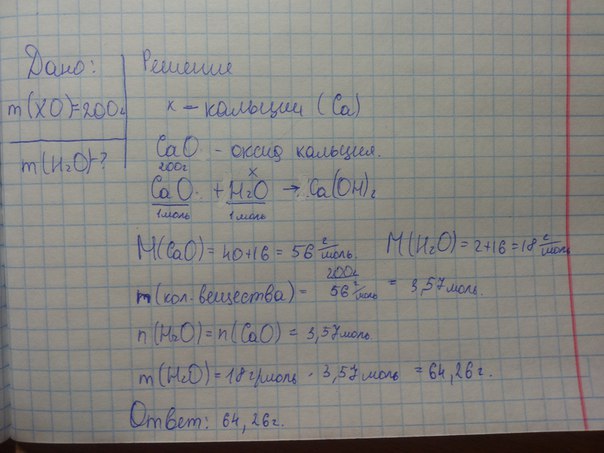 Дано:
m(XO)=200г
m(H₂O)-?
Решение
x – кальций (Ca)
CaO - оксид кальция.
200г x
CaO + H₂O → Ca(OH)₂
1моль 1моль
M(CaO) = 40+16 = 56 г/моль. M(H₂O) = 2+16 = 18 г/моль
m(кол. вещества) = 200г / 56 г/моль = 3,57 моль.
n(H₂O) = n(CaO) = 3,57 моль.
m(H₂O) = 18 г/моль · 3,57 моль = 64,26 г.
Ответ: 64,26 г.